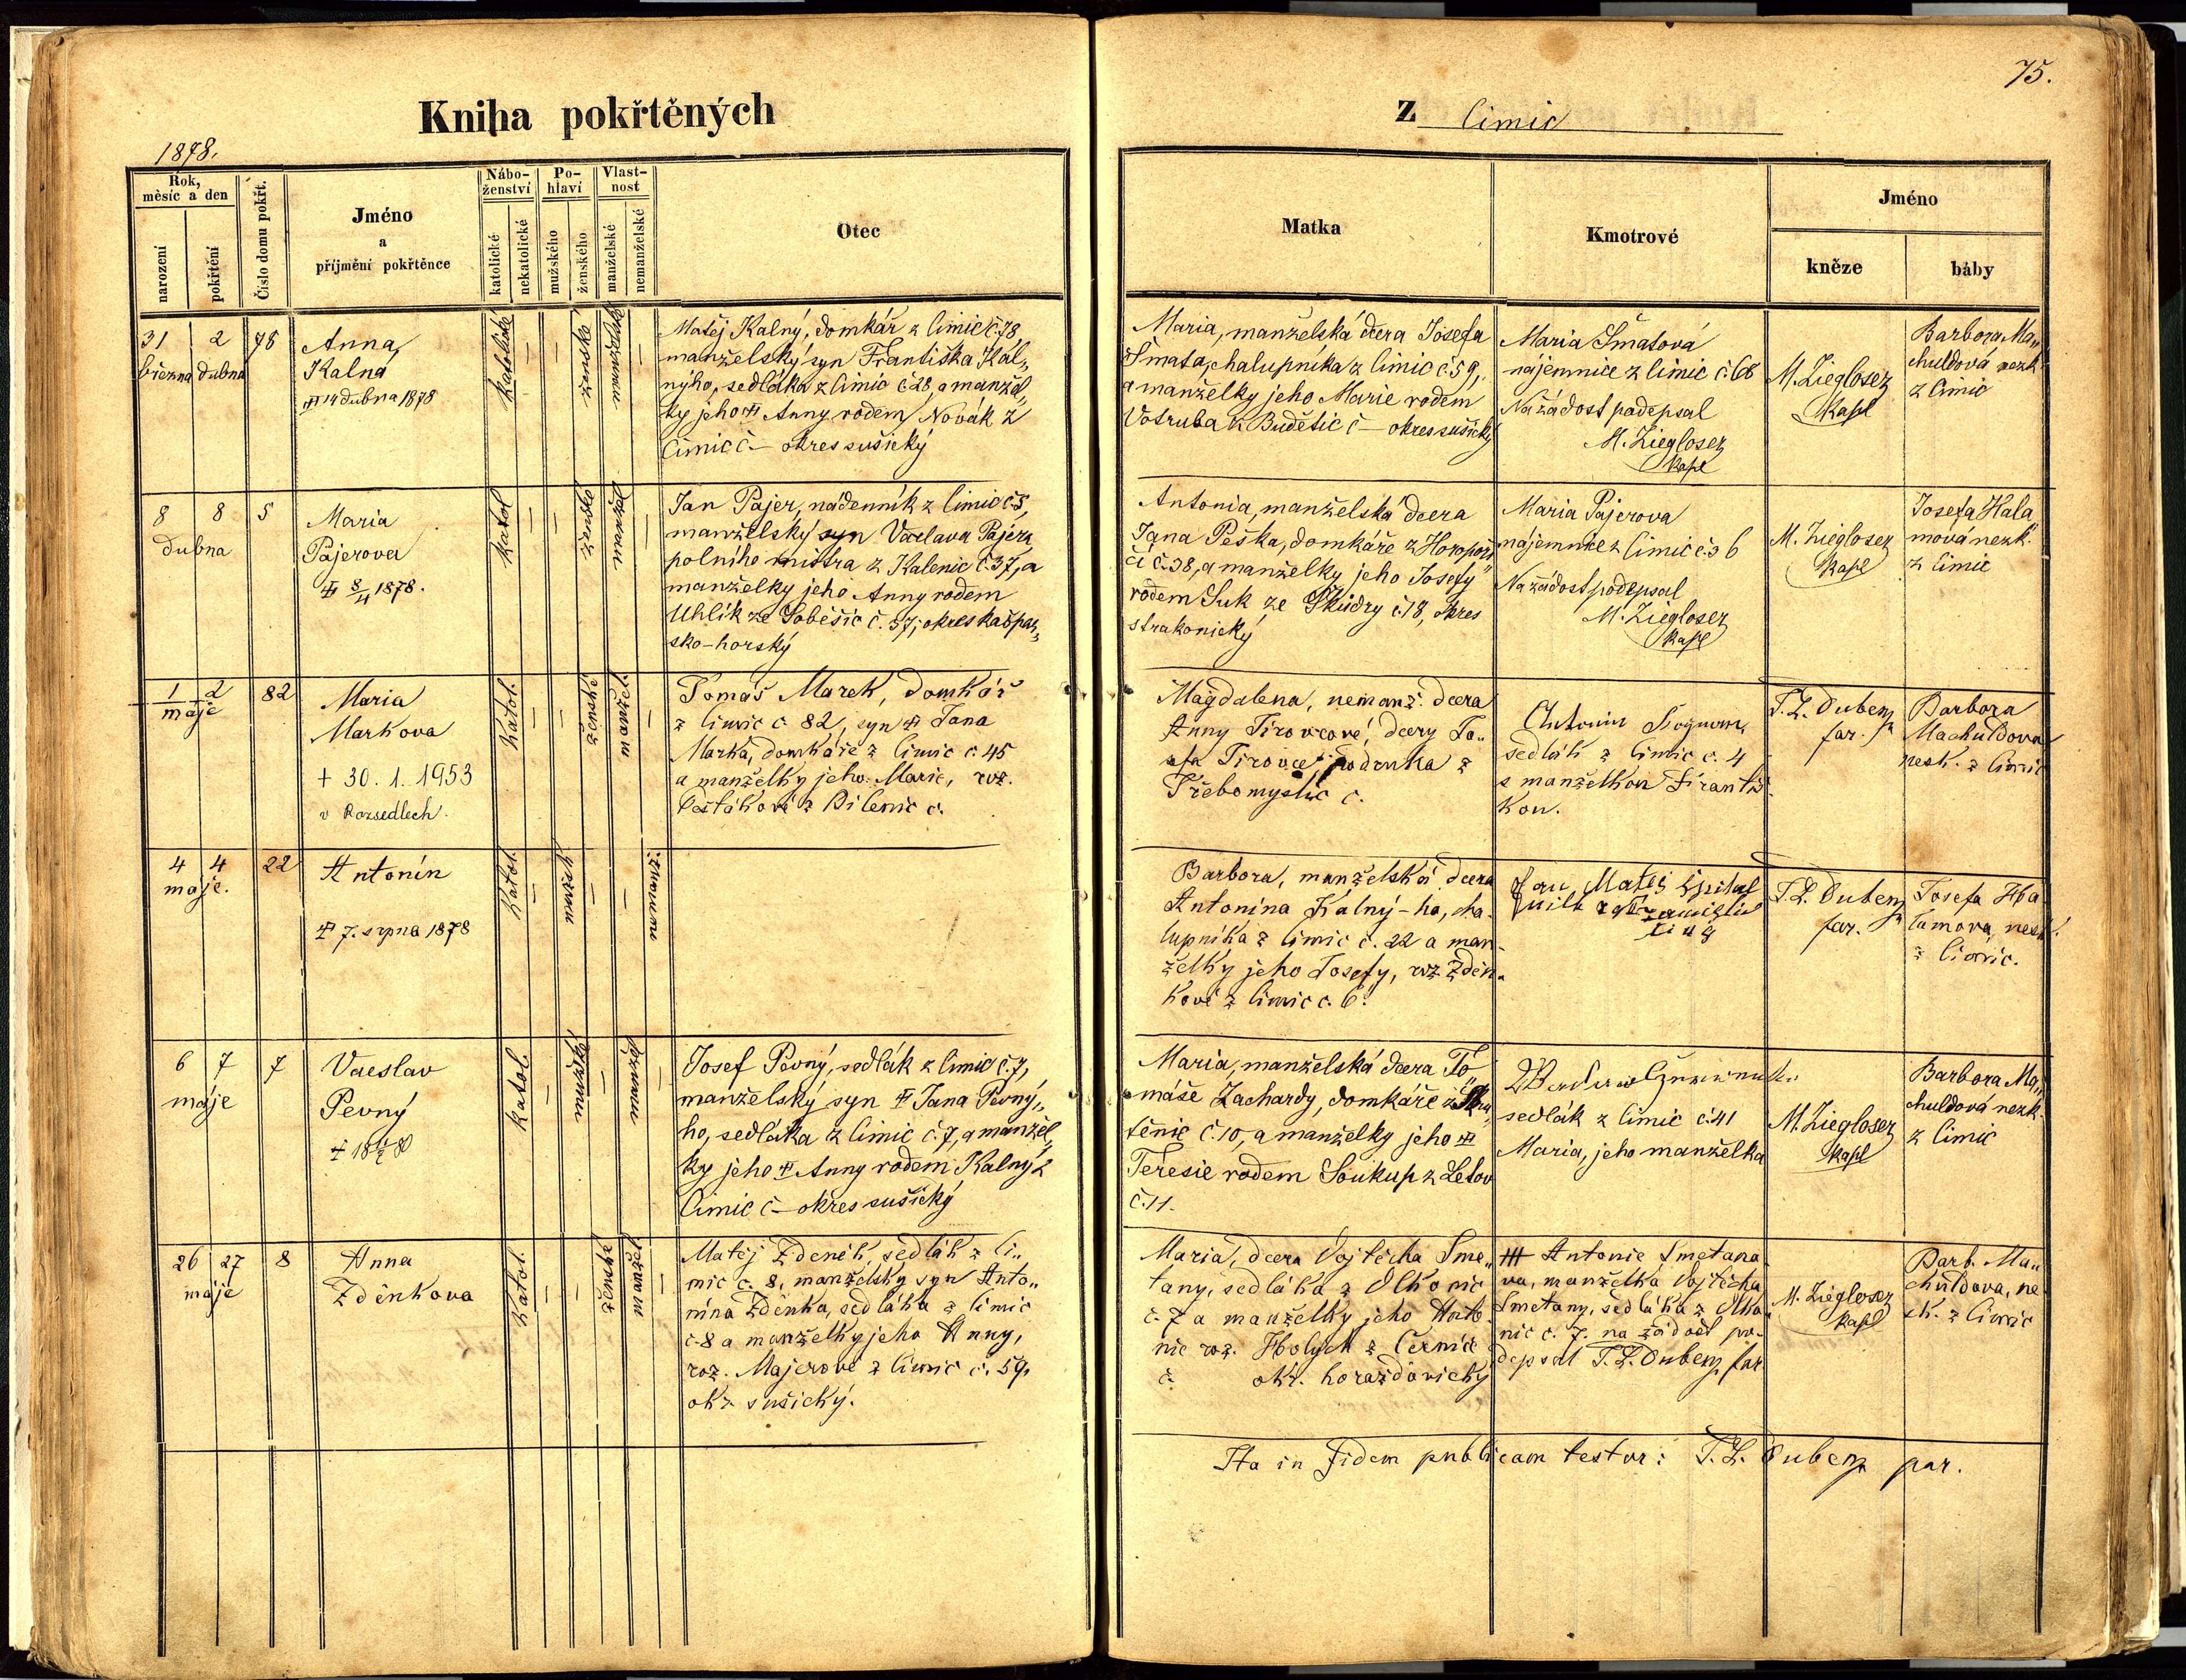 75.
Kniha pokřtěných
z Cimic
1878.
Rok,
měsíc a den
narození
pokřtění
Číslo domu pokřt.
Jméno
a
příjmění pokřtěnce
Nábo-
ženství
katolické
nekatolické
Po-
hlaví
mužského
ženského
Vlast-
nost
manželské
nemanželské
Otec
Matka
Kmotrové
Jméno
kněze
báby
31 2 78
března dubna
Anna
Kalná
14 dubna 1878
katolické
ženské
manželské
Matěj Kalný, domkář z Cimic č. 78,
manželský syn Františka Kal„
nýho, sedláka z Cimic č 28, a manžel„
ky jeho Anny rodem Novák z
Cimic č – okres sušický
Maria, manželská dcera Josefa
Šmata, chalupníka z Cimic č. 59,
a manželky jeho Marie rodem
Votruba z Budětic č – okres sušický
Maria Šmatová
nájemnice z Cimic č. 68
Na žádost podepsal
M. Ziegloser
kapl
M. Ziegloser
kapl
Barbora Ma„
chuldová nezk.
z Cimic
8 8 5
dubna
Maria
Pajerova
8/4 1878.
katol
ženské
manžel
Jan Pajer, nádenník z Cimic č 5,
manželský syn Václava Pajera
polního mistra z Kalenic č. 37, a
manželky jeho Anny rodem
Uhlík ze Soběšic č. 57, okres kašpar„
sko-horský
Antonia, manželská dcera
Jana Peška, domkáře z
č. 38, a manželky jeho Josefy
rodem Suk ze Škúdry č. 18, okres
strakonický
Maria Pajerova
nájemnice z Cimic č. 36
Na žádost podepsal
M. Ziegloser
kapl
M. Ziegloser
kapl
Josefa Hala
mová nezk.
z Cimic
1 2 82
máje
Maria
Markova
+ 30. 1. 1953
v Rozsedlech.
Katol.
ženské
manžel.
Tomáš Marek, domkář
z Cimic č 82, syn Jana
Marka, domkáře z Cimic č. 45
a manželky jeho Marie, roz.
z Bilenic č.
Magdalena, nemanž. dcera
Anny Tirovcové, dcery Jo„
sefa Tirovce, podruha z
Třebomyslic č.
Antonín
sedlák z Cimic č. 4
s manželkou Františ
kou.
T. L. Dubenz
far.
Barbora
Machuldova
nesk. z Cimic
4 4 22
máje.
Antonín
7. srpna 1878
Katol.
mužský
nemanž.
Barbora, manželská dcera
Antonína Kalný-ho, cha-
lupníka z Cimic č. 22 a man-
želky jeho Josefy, roz Zděn-
kové z Cimic č. 6.
Jan Matěj
T. L. Dubenz
far.
Josefa Ha
lamova, nesk.
z Cimic.
6 7 7
máje
Vácslav
Pevný
katol.
mužské
manžel
Josef Pevný, sedlák z Cimic č. 7,
manželský syn Jana Pevný„
ho, sedláka z Cimic č. 7, a manžel„
ky jeho Anny rodem Kalný z
Cimic č – okres sušický
Maria, manželská dcera To„
máše Zachardy, domkáře z
č. 10, a manželky jeho
Teresie rodem Soukup z Letov
č. 11.
sedlák z Cimic č. 41
Maria, jeho manželka
M. Ziegloser
kapl
Barbora Ma„
chuldová nezk.
z Cimic
26 27 8
máje
Anna
Zděnkova
Katol.
ženské
manžel
Matěj Zdeněk, sedlák z Ci„
mic č. 8, manželský syn Anto„
nína Zděnka, sedláka z Cimic
č. 8 a manželky jeho Anny,
roz. Majerové z Cimic č. 59,
okr sušický.
Maria, dcera Vojtěcha Sme„
tany, sedláka z Olhonic
č. 7 a manželky jeho Anto-
nie roz. Holých z Černíč
č okr. horažďovický
+++ Antonie Smetana
va, manželka Vojtěcha
Smetany, sedláka z Olho
nic č. 7. na žádost po-
depsal T. L. Dubenz far.
M. Ziegloser
kapl
Barb. Ma„
chuldova, ne
sk. z Cimic
Ita in fidem publicam testor: T. L. Dubenz par.